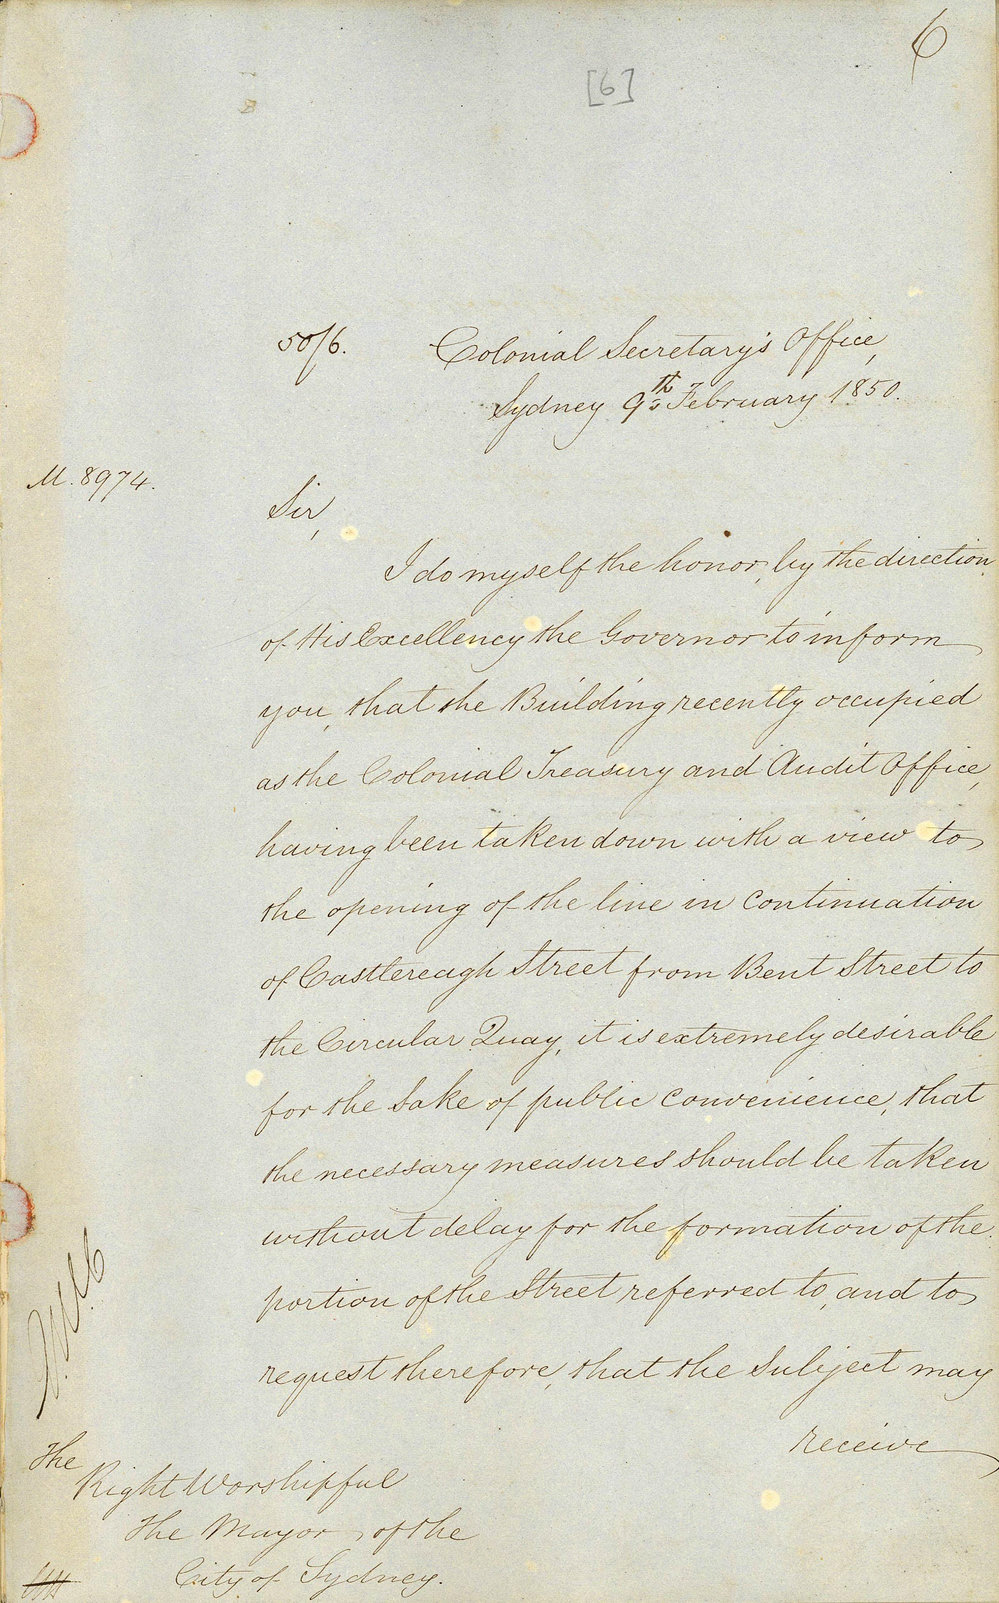 6
[6]
50/6.
Colonial Secretary's Office,
Sydney 9th February 1850.
M. 8974.
Sir,
I do myself the honor, by the direction
of His Excellency the Governor to inform
you, that the Building recently occupied
as the Colonial Treasury and Audit Office,
having been taken down with a view to
the opening of the line in continuation
of Castlereagh Street from Bent Street to
the Circular Quay, it is extremely desirable
for the sake of public convenience, that
the necessary measures should be taken
without delay for the formation of the
portion of the Street referred to, and to
request therefore, that the subject may
receive
The
Right Worshipful
The Mayor of the
City of Sydney.